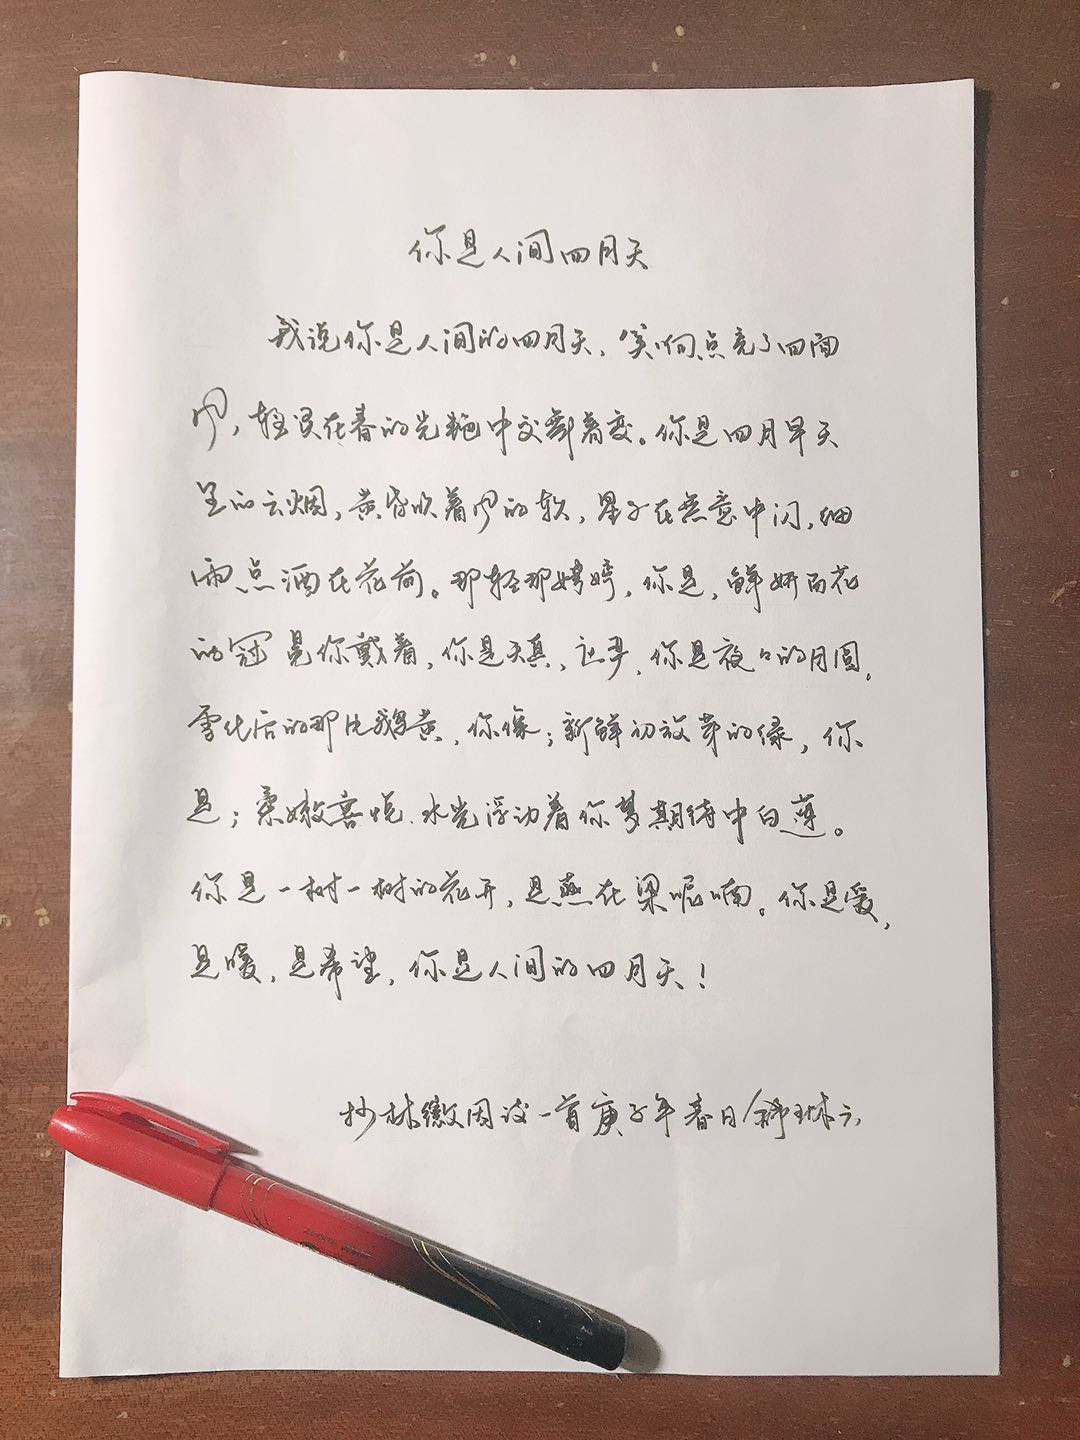 你是人间四月天
我说你是人间的四月天，笑响点亮了四面
风，轻灵在春的光艳中交舞着变。你是四月早天
里的云烟，黄昏吹着风的软，星子在无意中闪，细
雨点洒在花前。那轻那娉婷，你是，鲜妍百花
的冠冕你戴着，你是天真，庄严，你是夜夜的月圆。
雪化后的那片鹅黄，你像；新鲜初放芽的绿，你
是；柔嫩喜悦，水光浮动着你梦期待中白莲。
你是一树一树的花开，是燕在梁呢喃。你是爱，
是暖，是希望，你是人间的四月天！
抄林徽因诗一首庚子年春日